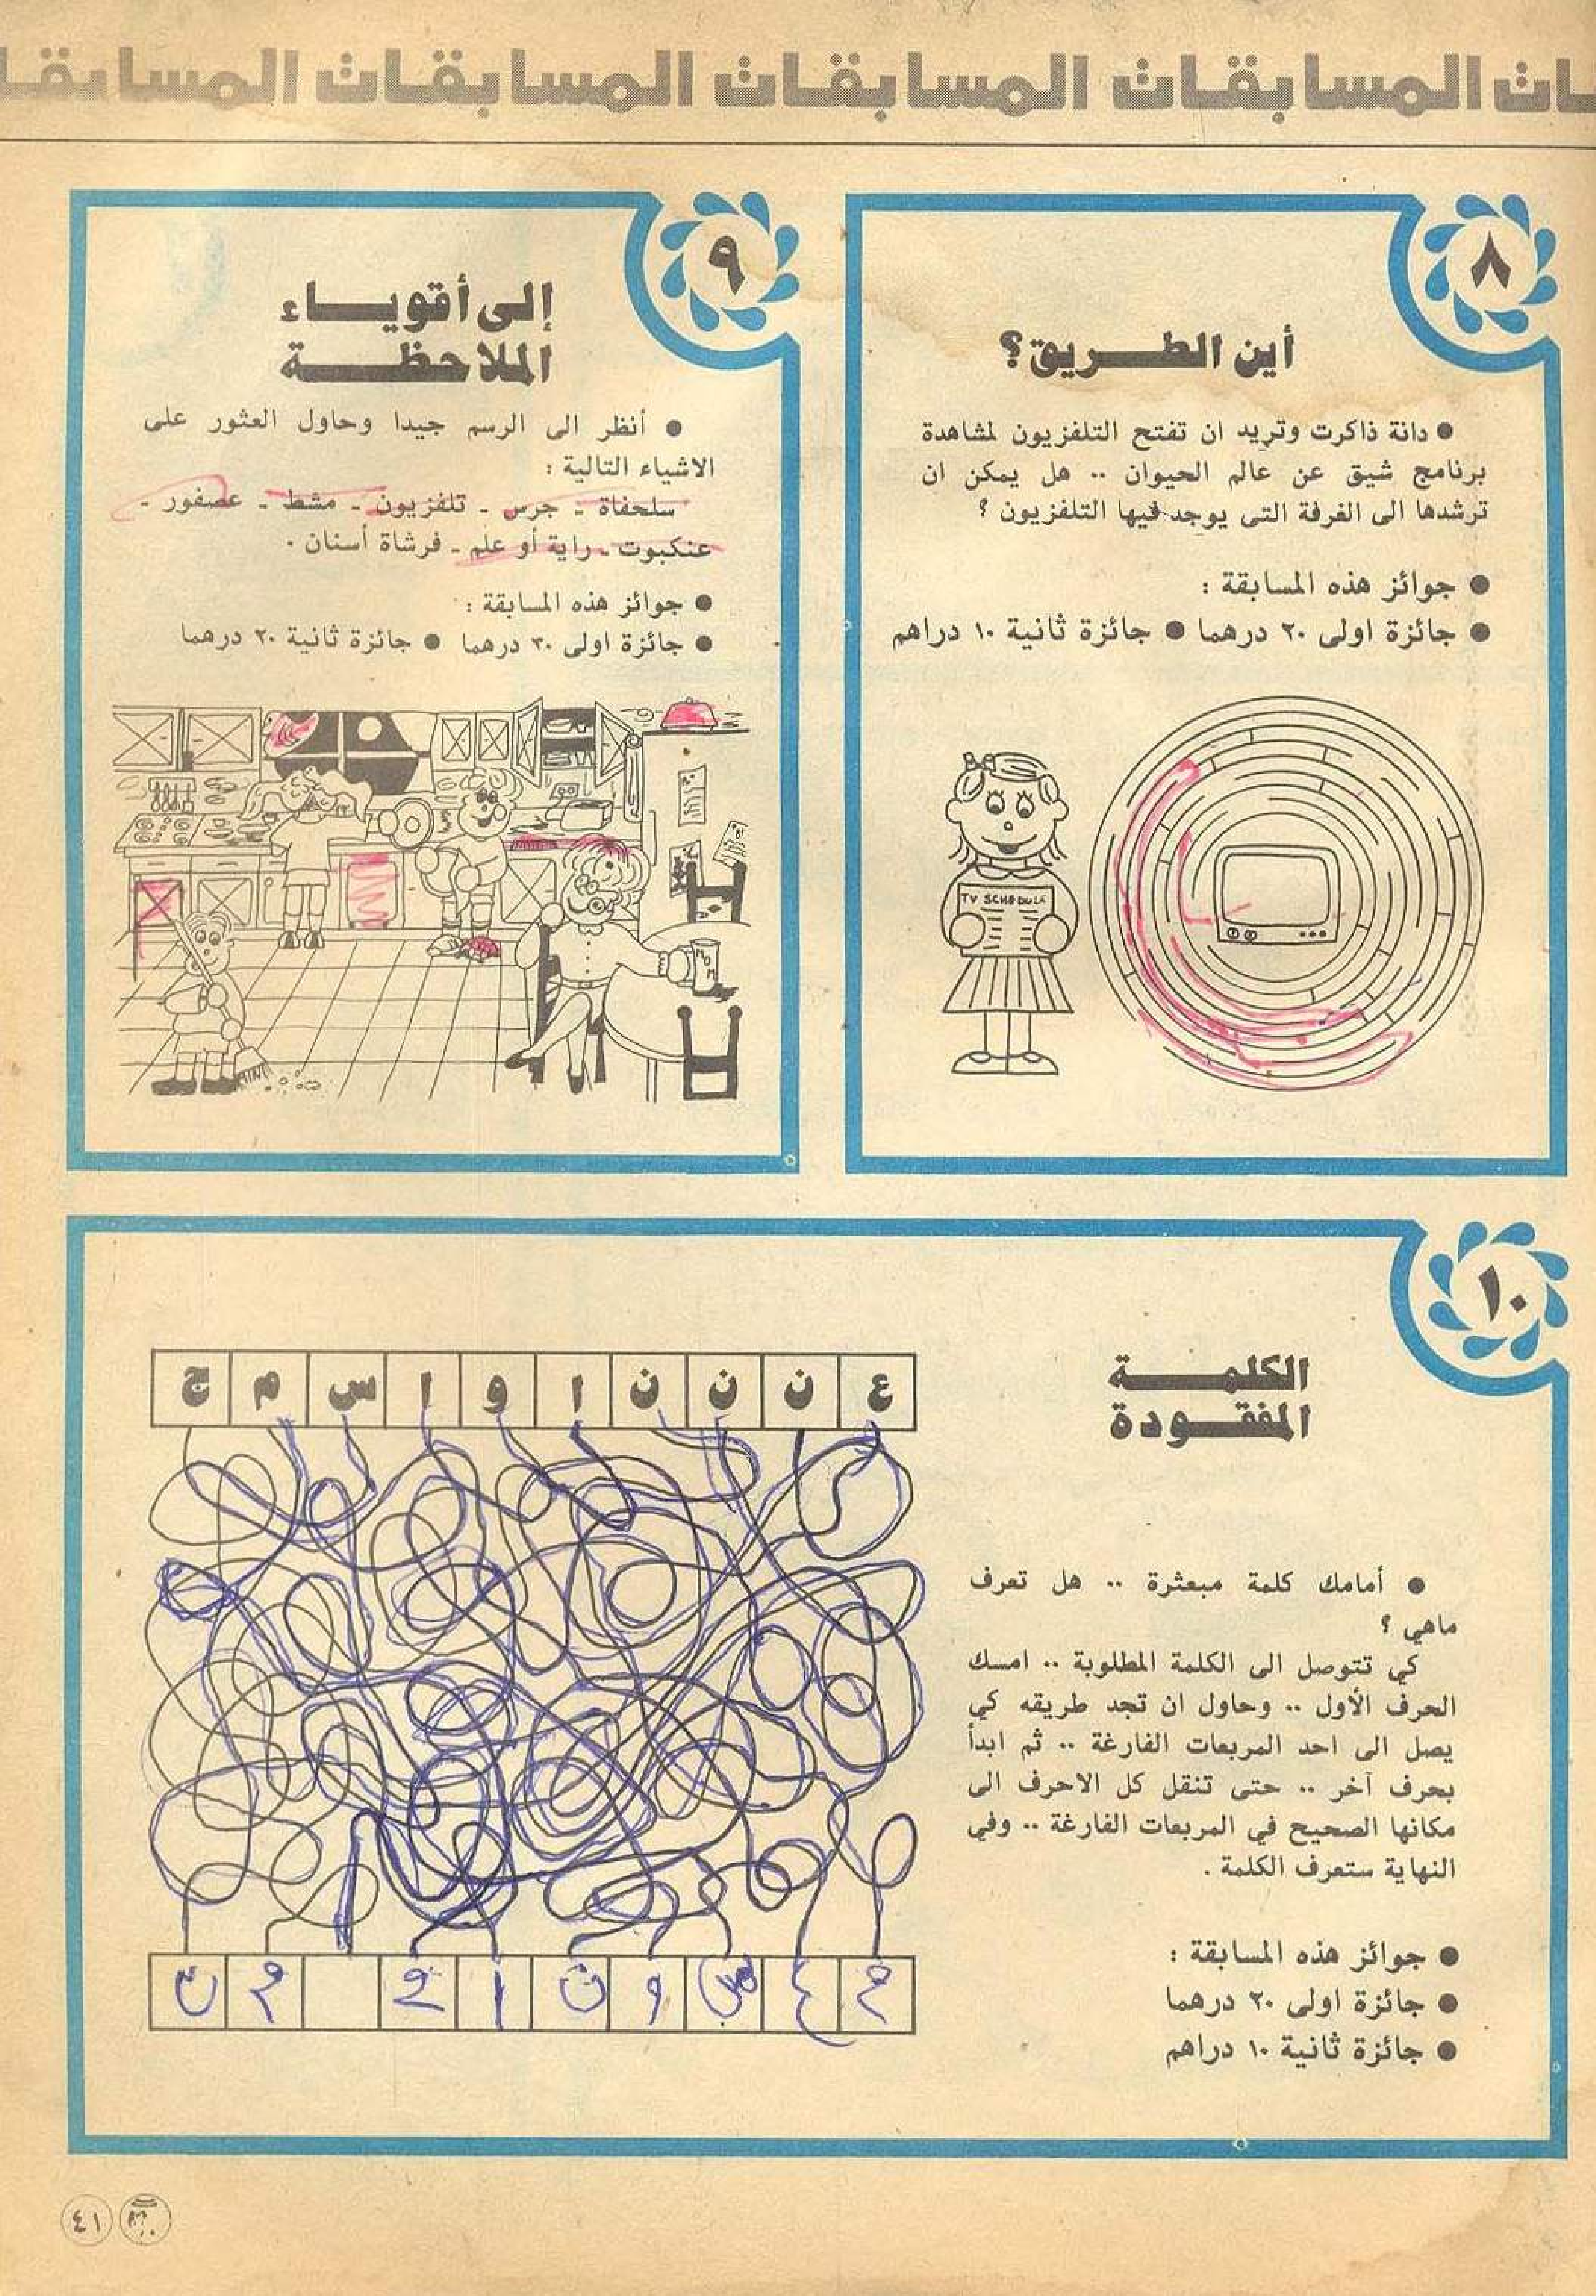 المسابقات المسابقات المسابقات
٨
أين الطريق؟
● دانة ذاكرت وتريد ان تفتح التلفزيون لمشاهدة
برنامج شيق عن عالم الحيوان .. هل يمكن ان
ترشدها الى الغرفة التى يوجد فيها التلفزيون ؟
● جوائز هذه المسابقة :
● جائزة اولى ٢٠ درهما ● جائزة ثانية ١٠ دراهم
TV SCHEDULE
٩
إلى أقوياء
الملاحظة
● أنظر الى الرسم جيدا وحاول العثور على
الاشياء التالية :
سلحفاة ـ جرس ـ تلفزيون ـ مشط ـ عصفور ـ
عنكبوت ـ راية أو علم ـ فرشاة أسنان .
● جوائز هذه المسابقة :
● جائزة اولى ٣٠ درهما ● جائزة ثانية ٢٠ درهما
١٠
الكلمة
المفقودة
● أمامك كلمة مبعثرة .. هل تعرف
ماهي ؟
كي تتوصل الى الكلمة المطلوبة .. امسك
الحرف الأول .. وحاول ان تجد طريقه كي
يصل الى احد المربعات الفارغة .. ثم ابدأ
بحرف آخر .. حتى تنقل كل الاحرف الى
مكانها الصحيح في المربعات الفارغة .. وفي
النهاية ستعرف الكلمة .
● جوائز هذه المسابقة :
● جائزة اولى ٢٠ درهما
● جائزة ثانية ١٠ دراهم
ع ن ن ن ا و ا س م ج
٤١